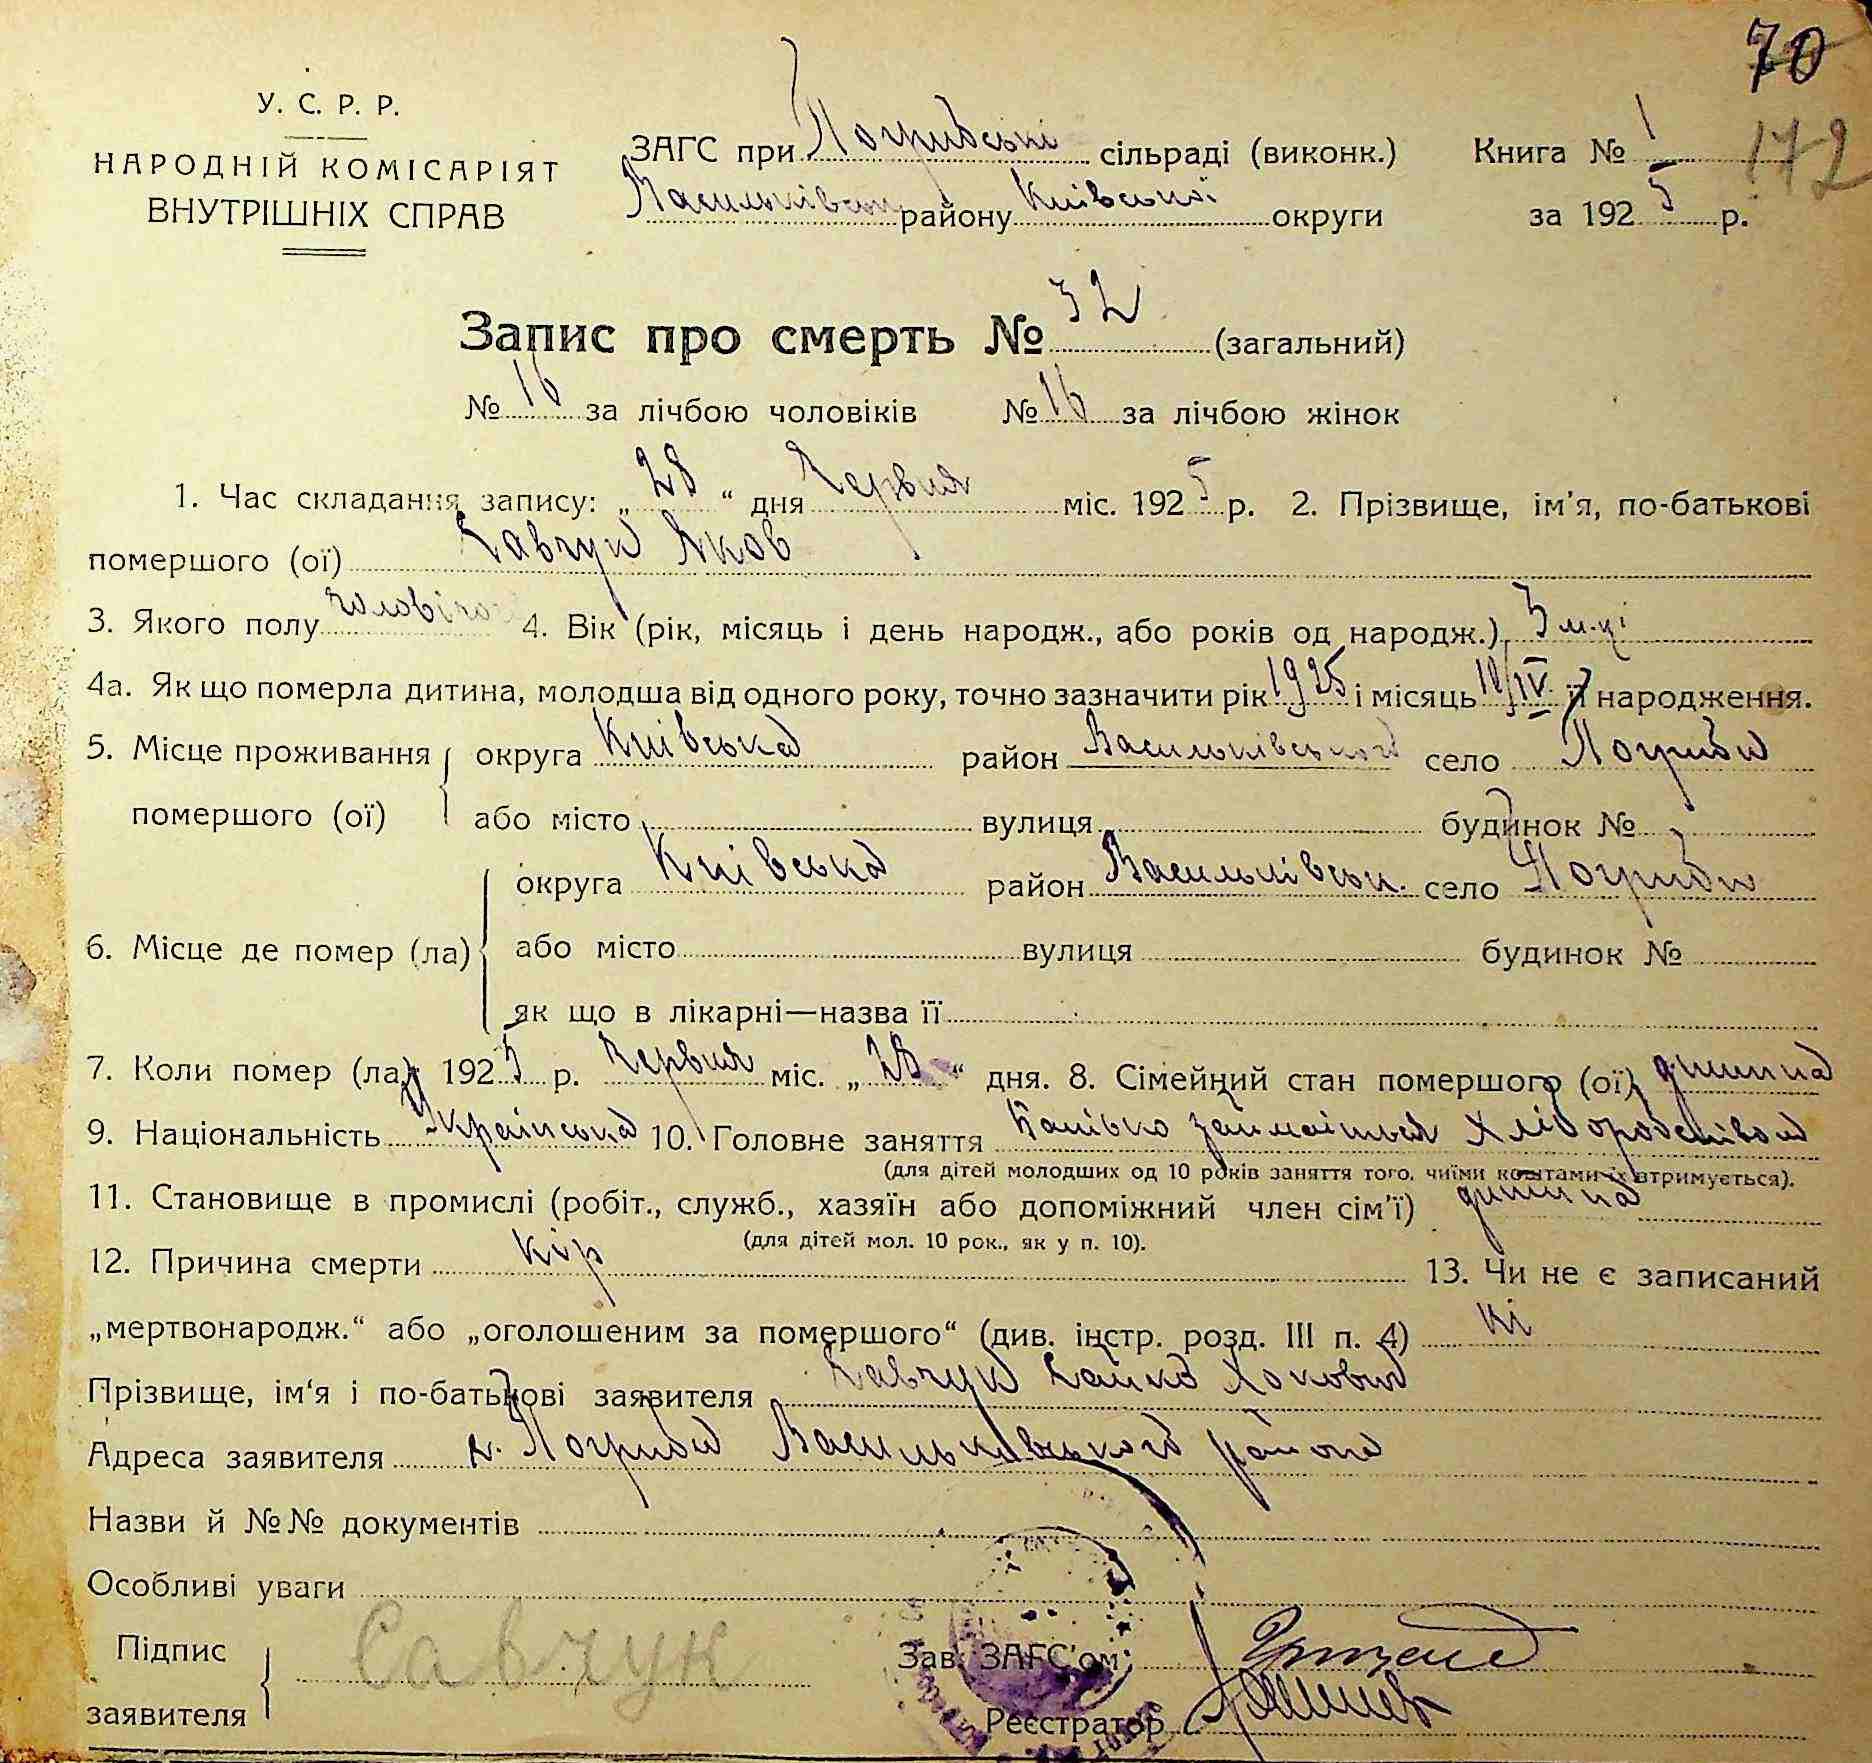 70
172
У. С. Р. Р.
НАРОДНІЙ КОМІСАРІЯТ
ВНУТРІШНІХ СПРАВ
ЗАГС при Погребські сільраді (виконк.) Книга № 1
Васильківськ району Київської округи за 1925 р.
Запис про смерть № 32 (загальний)
№ 16 за лічбою чоловіків № 16 за лічбою жінок
1. Час складання запису: „28“ дня Червня міс. 1925 р. 2. Прізвище, ім'я, по-батькові
помершого (ої) Савчук Яков
3. Якого полу чоловічо 4. Вік (рік, місяць і день народж., або років од народж.) 3 м-ці
4а. Як що померла дитина, молодша від одного року, точно зазначити рік 1925 і місяць IV її народження.
5. Місце проживання округа Київська район Васильківського село Погриби
помершого (ої) або місто вулиця будинок №
округа Київська район Васильківськ. село Погриби
6. Місце де помер (ла) або місто вулиця будинок №
як що в лікарні—назва її
7. Коли помер (ла) 1925 р. Червня міс. „28“ дня. 8. Сімейний стан помершого (ої) дитина
9. Національність Українська 10. Головне заняття Батько займається хліборобством
(для дітей молодших од 10 років заняття того, чиїми коштами їх втримується).
11. Становище в промислі (робіт., служб., хазяїн або допоміжний член сім'ї) дитина
(для дітей мол. 10 рок., як у п. 10).
12. Причина смерти Кір 13. Чи не є записаний
„мертвонародж.“ або „оголошеним за помершого“ (див. інстр. розд. III п. 4) ні
Прізвище, ім'я і по-батькові заявителя Савчук
Адреса заявителя с. Погриби Васильковського района
Назви й №№ документів
Особливі уваги
Підпис заявителя Савчук
Зав. ЗАГС'ом
Реєстратор